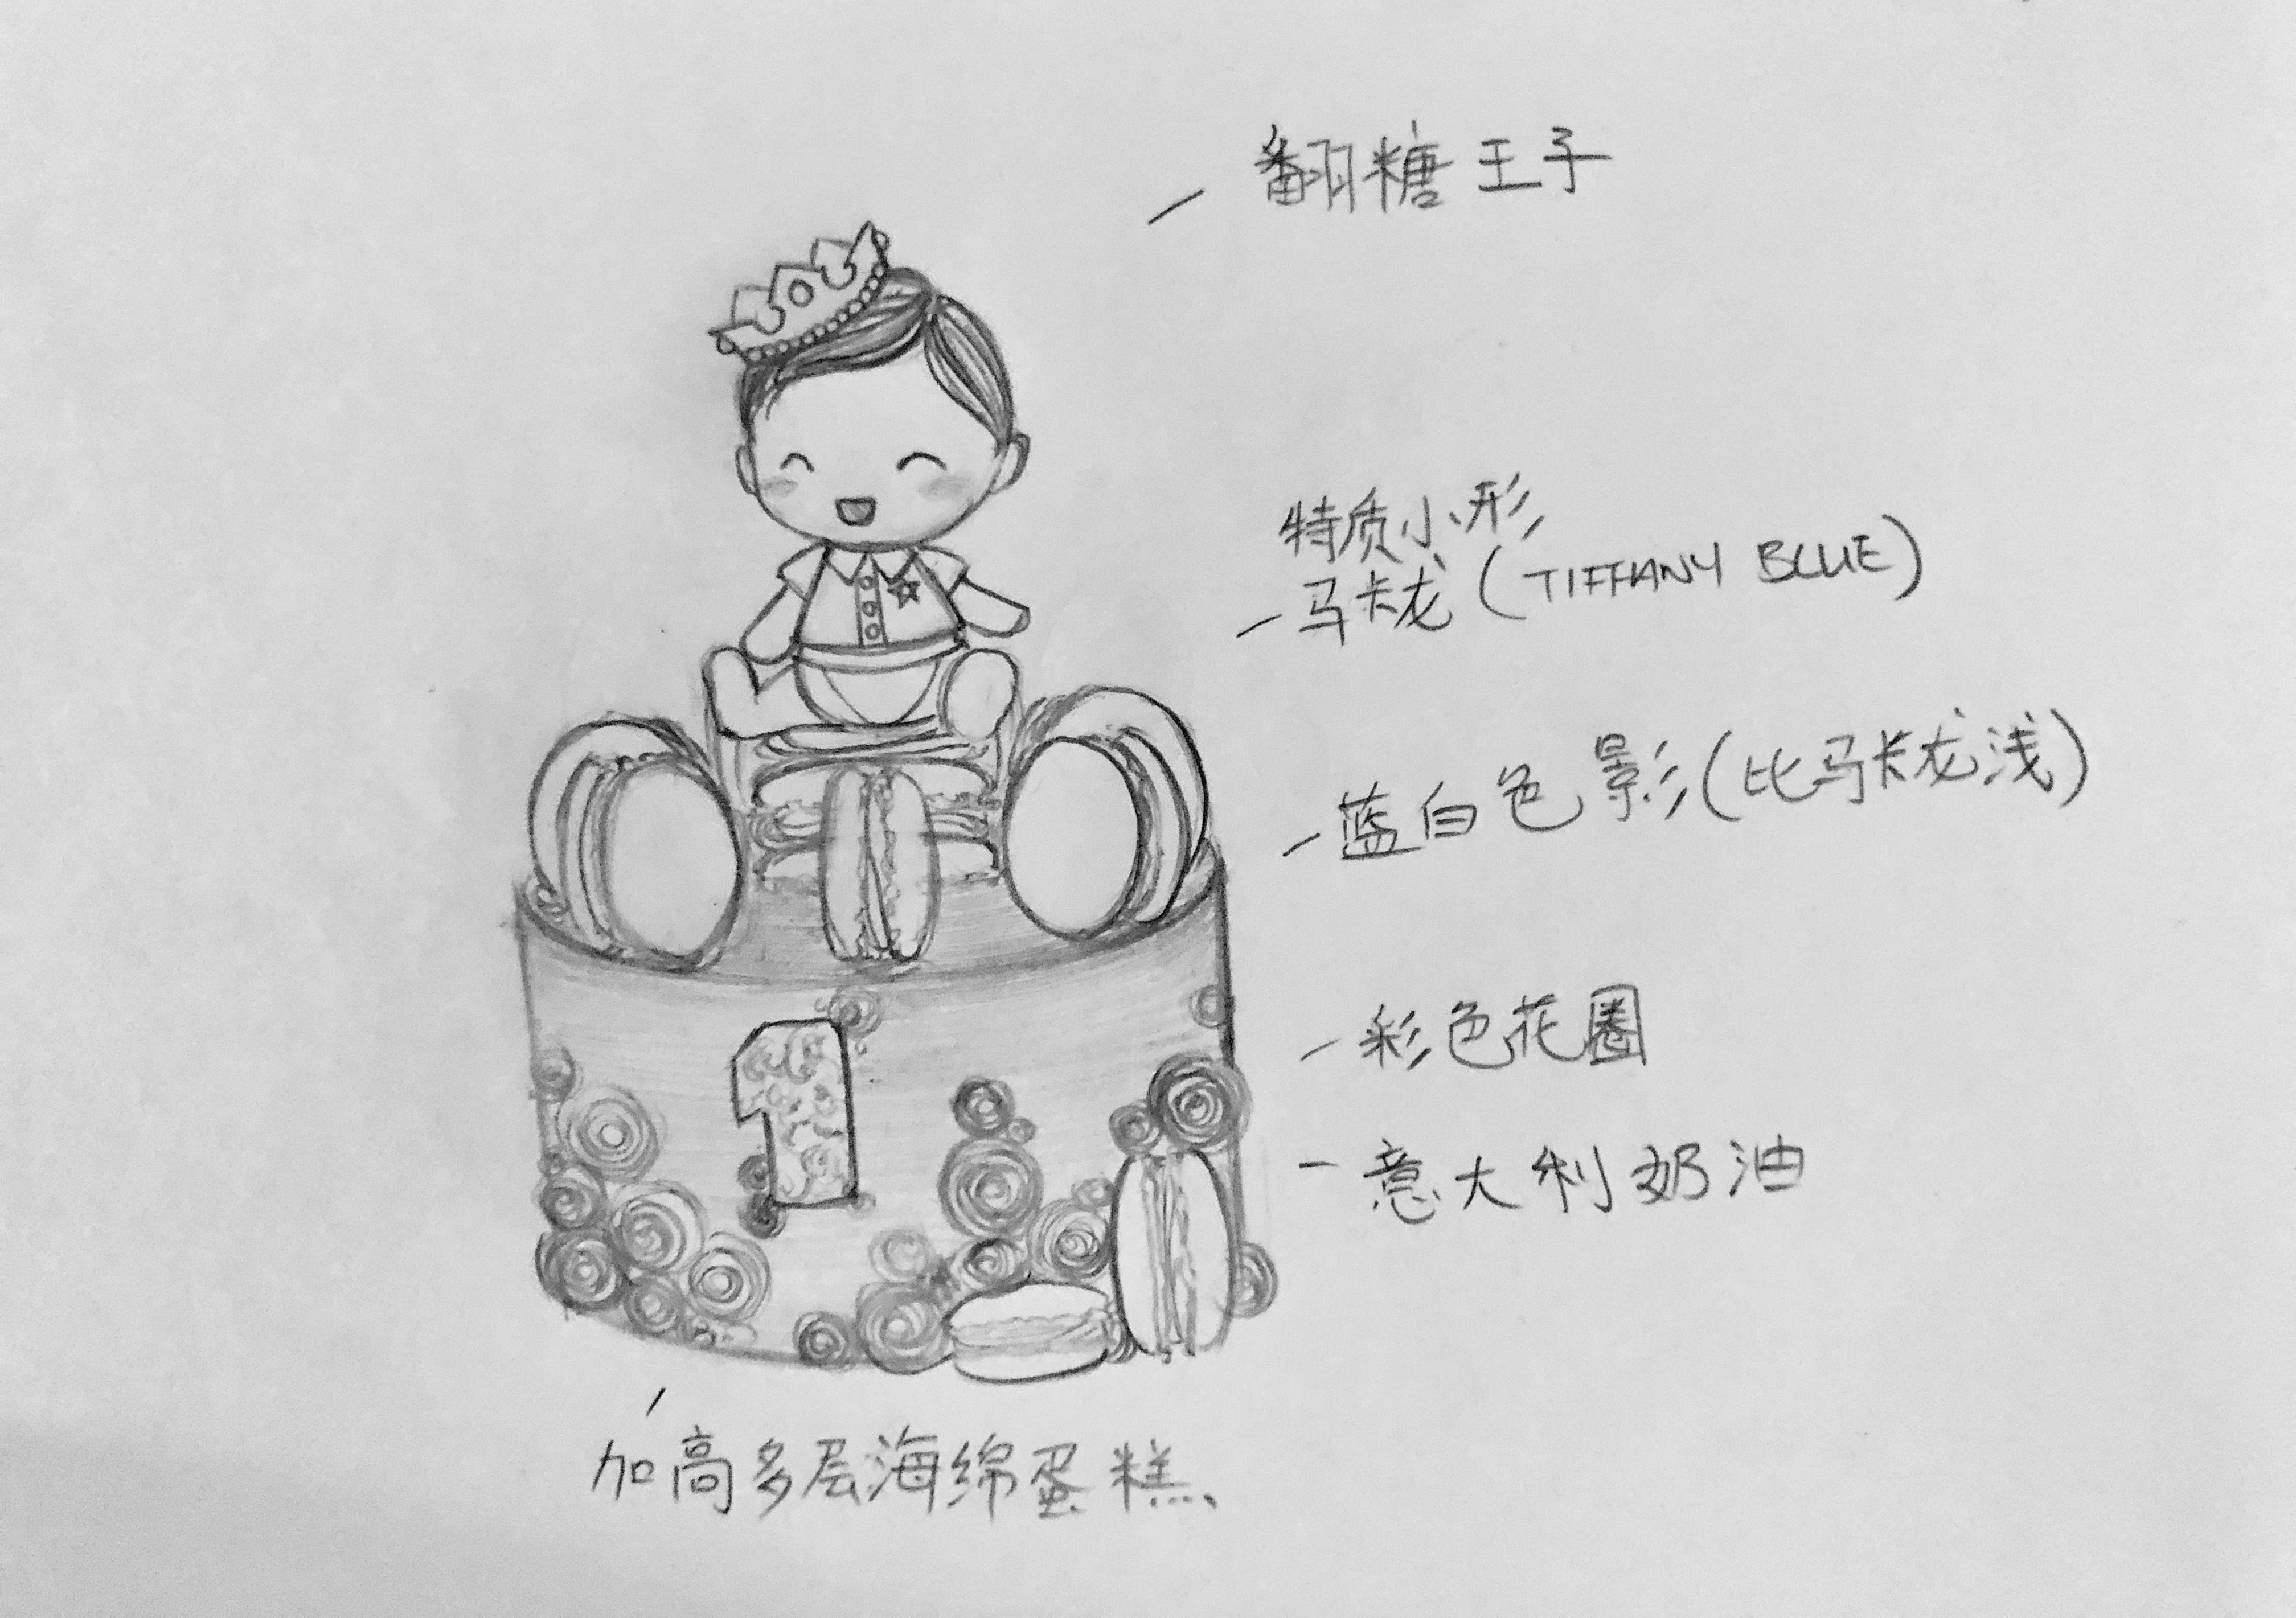 翻糖王子
特质小形
马卡龙(TIFFANY BLUE)
蓝白色影(比马卡龙浅)
1
彩色花圈
意大利奶油
加高多层海绵蛋糕